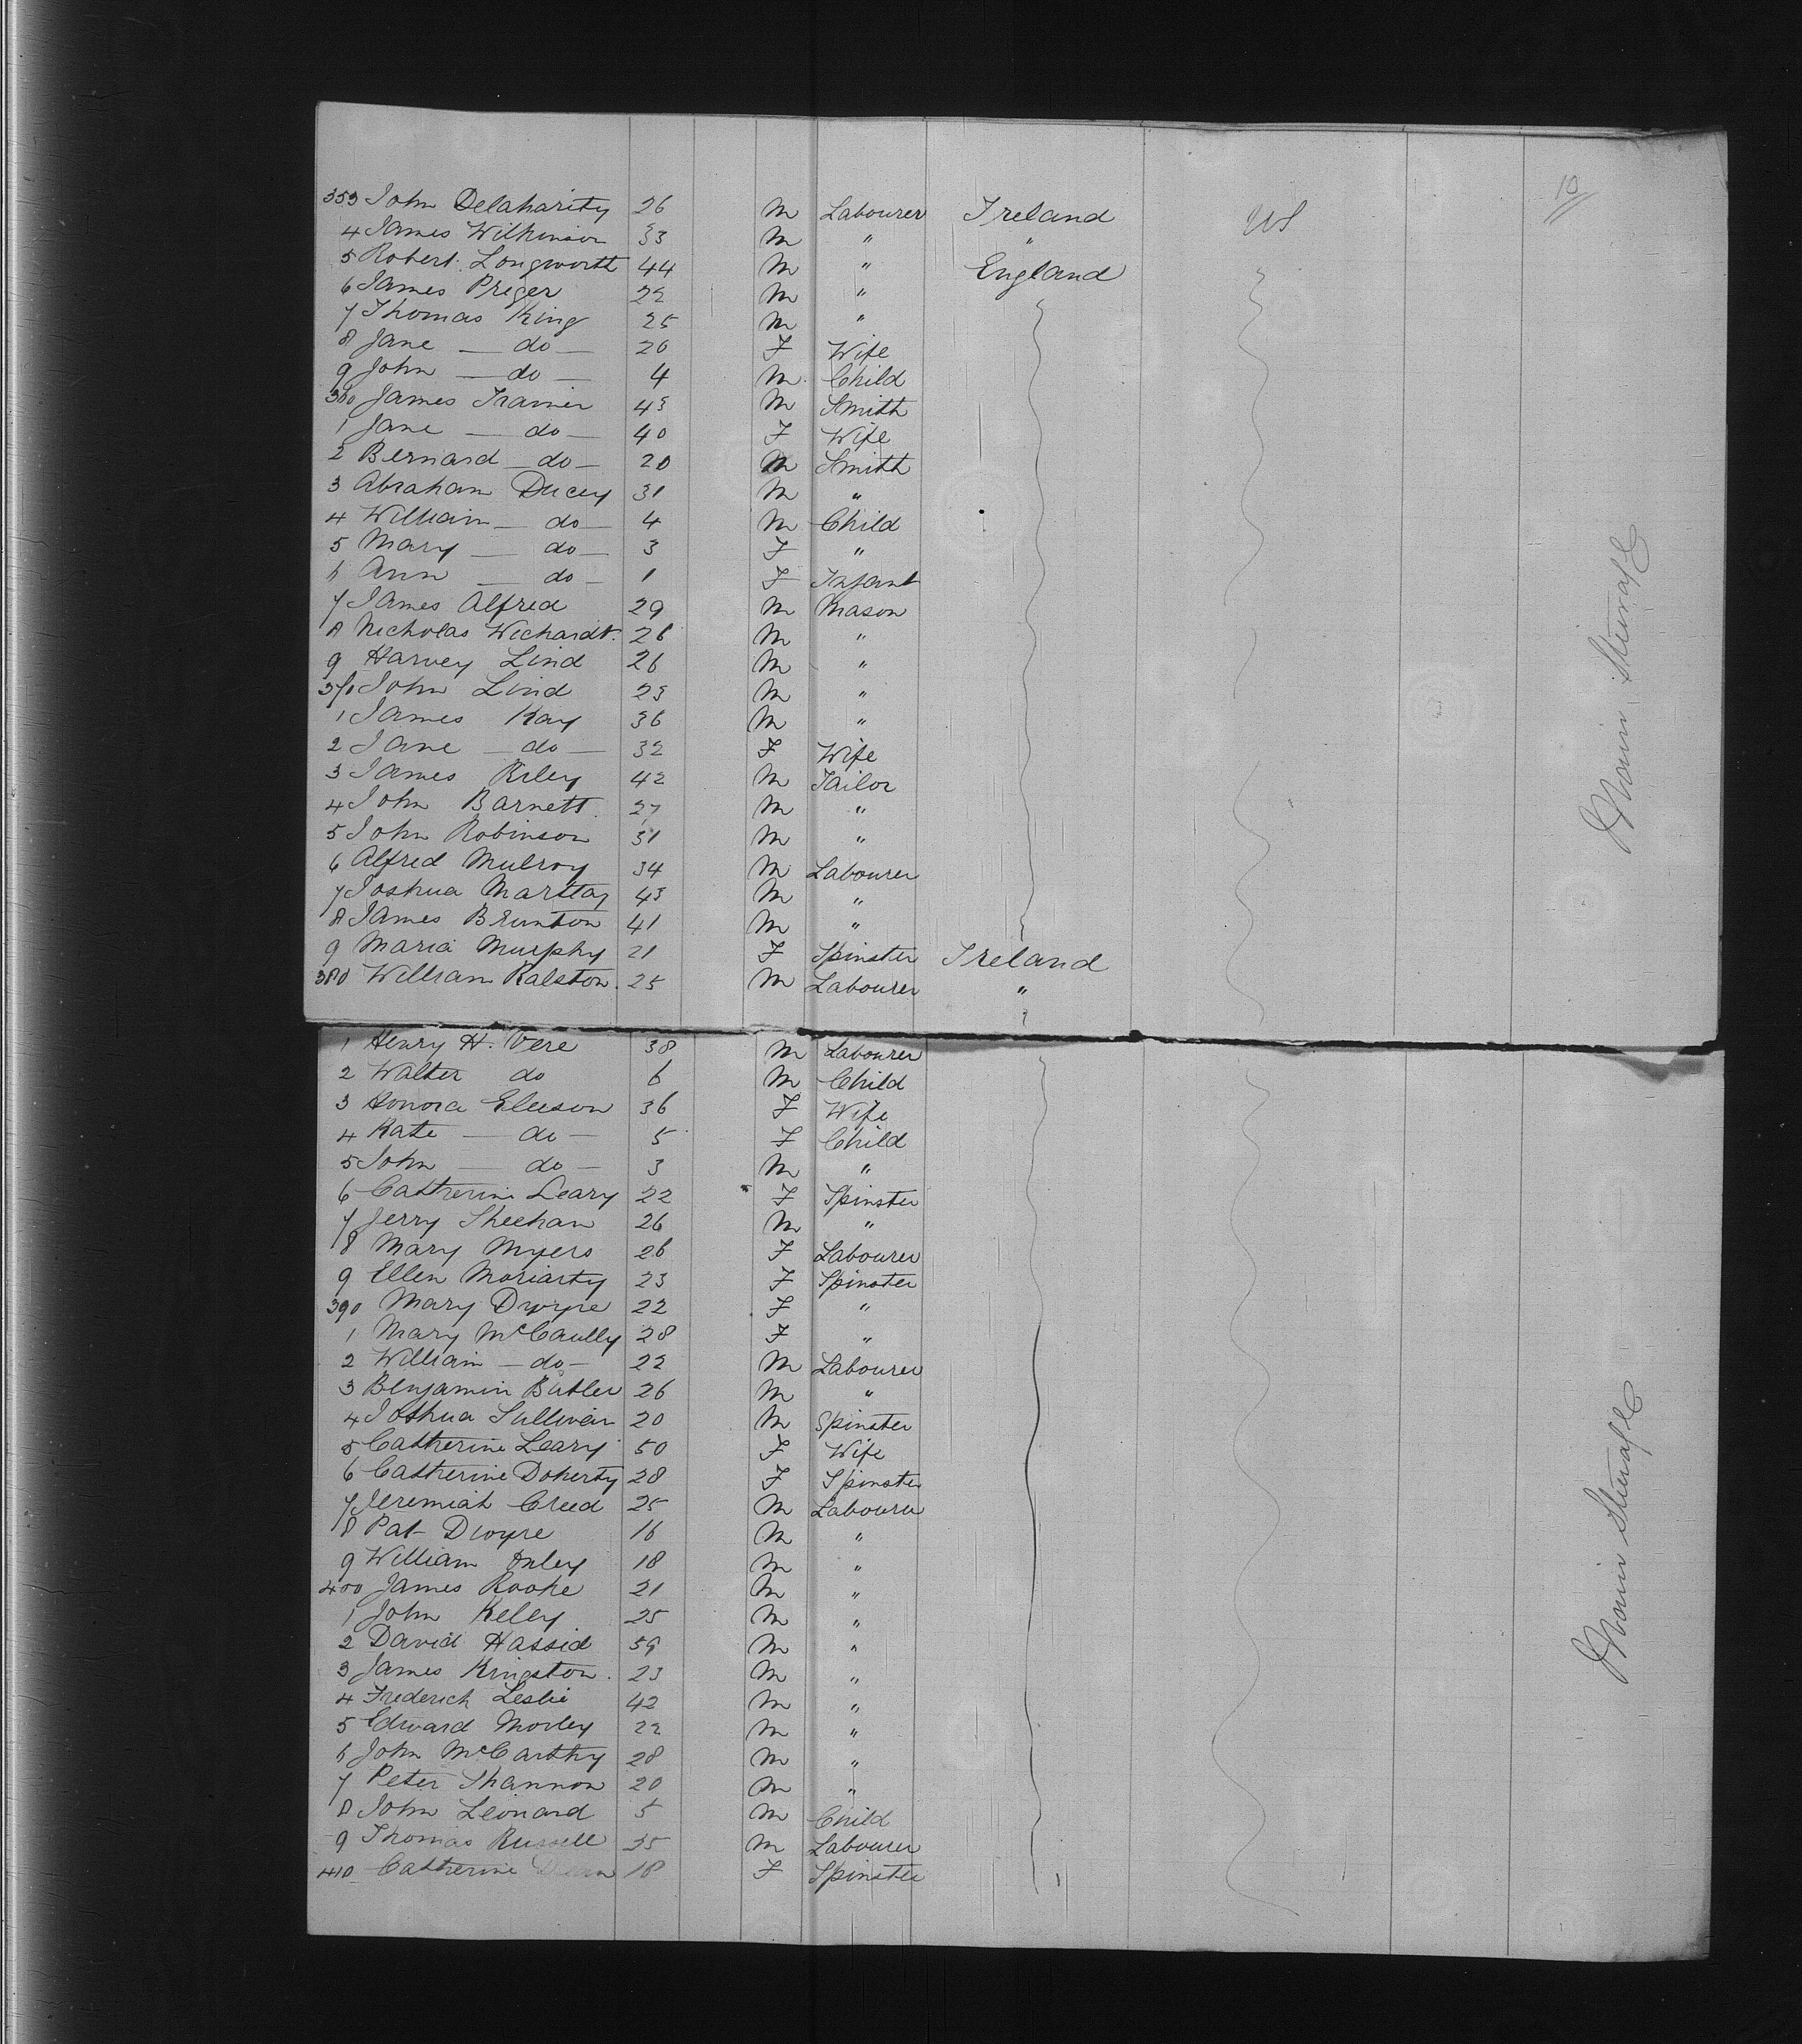 10
353 John Delaharity 26 M Labourer Ireland US
4 James Wilkinson 33 M " "
5 Robert Longworth 44 M " England
6 James Preger 22 M "
7 Thomas King 25 M "
8 Jane — do — 26 F Wife
9 John — do — 4 M Child
360 James Trainer 43 M Smith
1 Jane — do — 40 F Wife
2 Bernard — do — 20 M Smith
3 Abraham Ducey 31 M "
4 William — do — 4 M Child
5 Mary — do — 3 F "
6 Ann — do — 1 F Infant
7 James Alfred 29 M Mason
8 Nicholas Wichardt 26 M "
9 Harvey Lind 26 M "
370 John Lind 23 M "
1 James Kay 36 M "
2 Jane — do — 32 F Wife
3 James Riley 42 M Tailor
4 John Barnett 27 M "
5 John Robinson 31 M "
6 Alfred Mulroy 34 M Labourer
7 Joshua 43 M "
8 James Brunton 41 M "
9 Maria Murphy 21 F Spinster Ireland
380 William Ralston 25 M Labourer "
Main Steerage
1 Henry H. Vere 38 M Labourer
2 Walter do 6 M Child
3 Honora Eleeson 36 F Wife
4 Kate — do — 5 F Child
5 John — do — 3 M "
6 Catherine Leary 22 F Spinster
7 Jerry Sheehan 26 M "
8 Mary Myers 26 F Labourer
9 Ellen Moriarty 23 F Spinster
390 Mary Dwyre 22 F "
1 Mary McCaully 28 F "
2 William — do — 22 M Labourer
3 Benjamin Butler 26 M "
4 Joshua Sullivan 20 M Spinster
5 Catherine Leary 50 F Wife
6 Catherine Doherty 28 F Spinster
7 Jeremiah Creed 25 M Labourer
8 Pat Dwyre 16 M "
9 William 18 M "
400 James Rooke 21 M "
1 John Keley 25 M "
2 David Hassid 59 M "
3 James Kingston 23 M "
4 Frederick Leslie 42 M "
5 Edward Morley 22 M "
6 John McCarthy 28 M "
7 Peter Shannon 20 M "
8 John Leonard 5 M Child
9 Thomas Russell 35 M Labourer
410 Catherine 18 F Spinster
Main Steerage